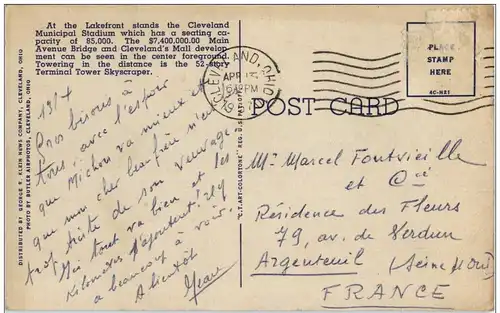 At the Lakefront stands the Cleveland
Municipal Stadium which has a seating ca-
pacity of 85,000. The $7,400,000.00 Main
Avenue Bridge and Cleveland's Mall develop-
ment can be seen in the center foreground.
Towering in the distance is the 52-story
Terminal Tower Skyscraper.
DISTRIBUTED BY GEORGE R. KLEIN NEWS COMPANY, CLEVELAND, OHIO
PHOTO BY BUTLER AIRPHOTOS, CLEVELAND, OHIO
13/4
Gros bisous à
tous, avec l'espoir
que Michou va mieux et
que mon cher beau-frère n'est
pas triste de son veuvage.
Ici tout va bien et les
kilomètres s'ajoutent! Il y
a beaucoup à voir.
A bientôt
Jean
"C.T. ART-COLORTONE" REG. U.S. PAT. OFF.
CLEVELAND, OHIO
APR
PM
19
POST CARD
PLACE
STAMP
HERE
6C-H21
Mr Marcel Fontvieille
et Cie
Résidence des Fleurs
79, av. de Verdun
Argenteuil (Seine et Oise)
FRANCE